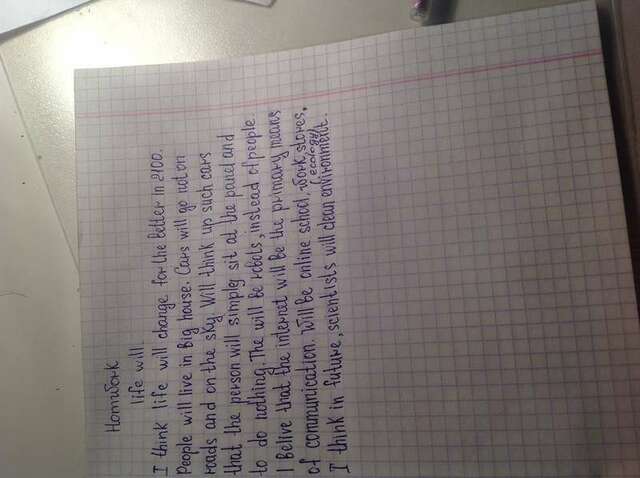 Homework
life will
I think life will change for the better in 2100.
People will live in Big house. Cars will go not on
roads and on the sky. Will think up such cars
that the person will simply sit at the panel and
to do nothing. The will be robots, instead of people.
I Belive that the internet will be the primary means
of communication. Will be online school, work, stores.
(ecology)
I think in future, scientists will clean environment.